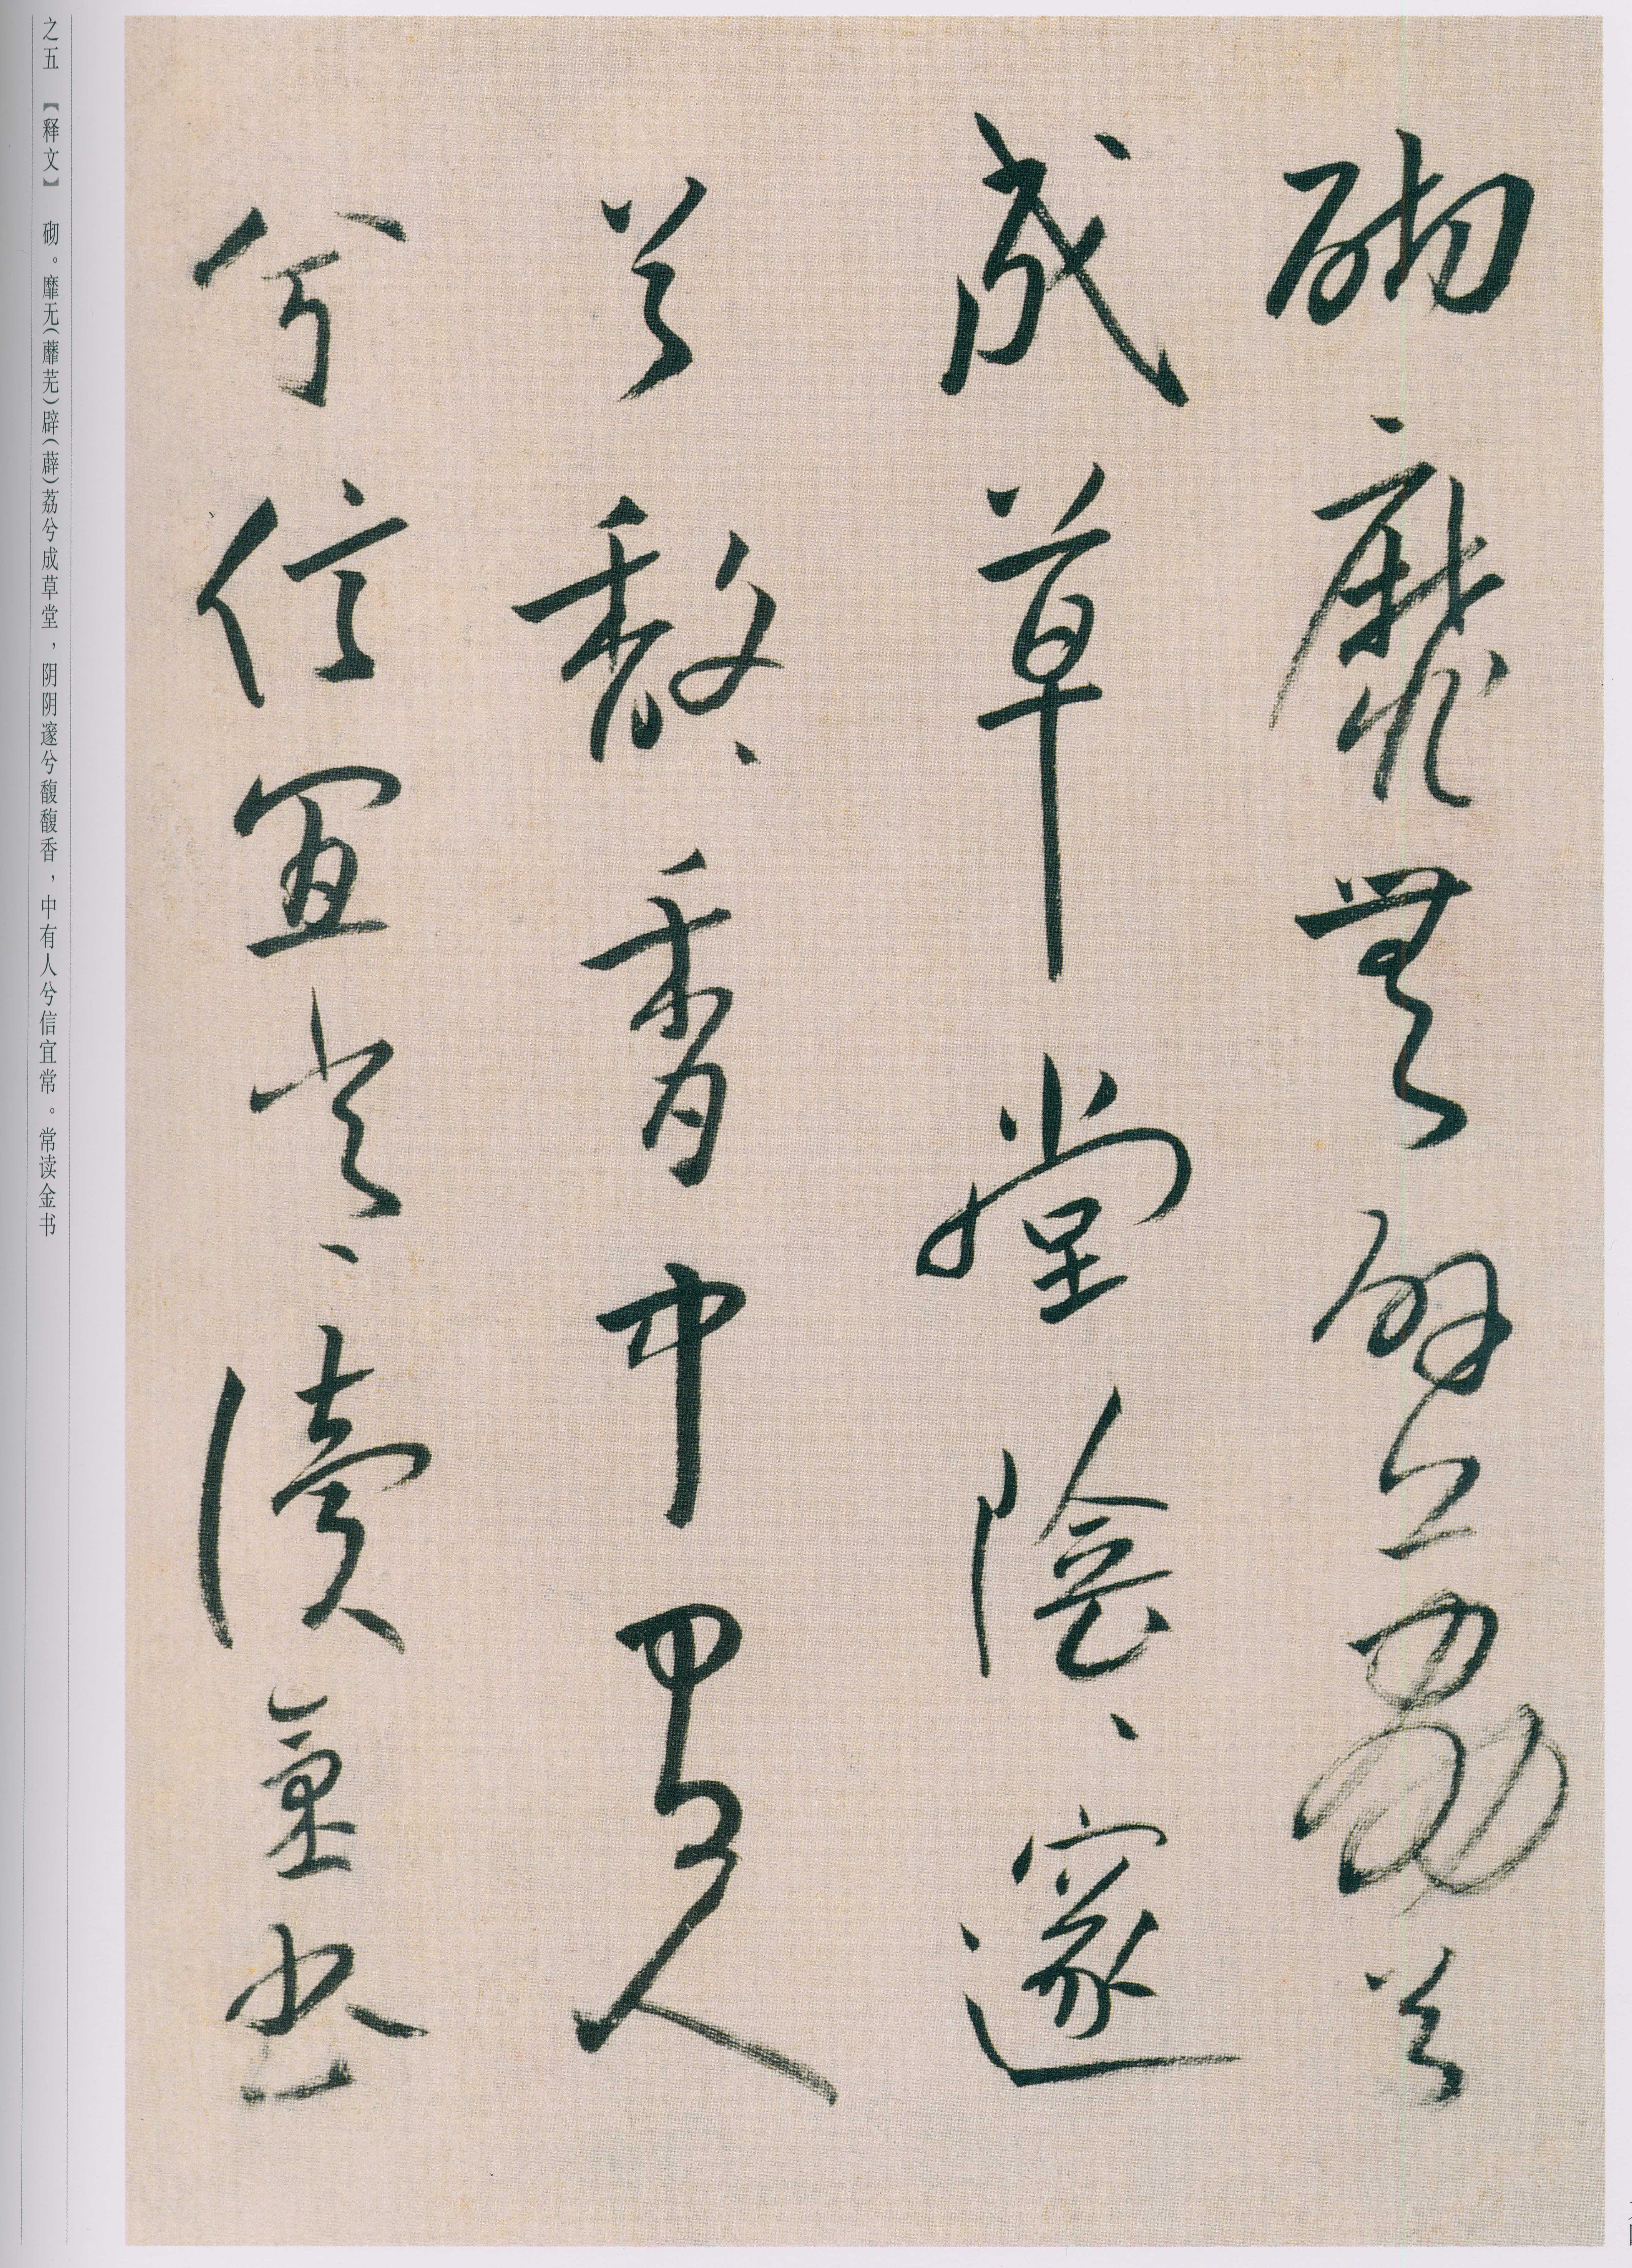 砌靡無辟荔兮
成草堂陰、邃
兮馥、香中有人
兮信宜常、讀金書
之五 【释文】 砌。靡无(蘼芜)辟(薜)荔兮成草堂，阴阴邃兮馥馥香，中有人兮信宜常。常读金书